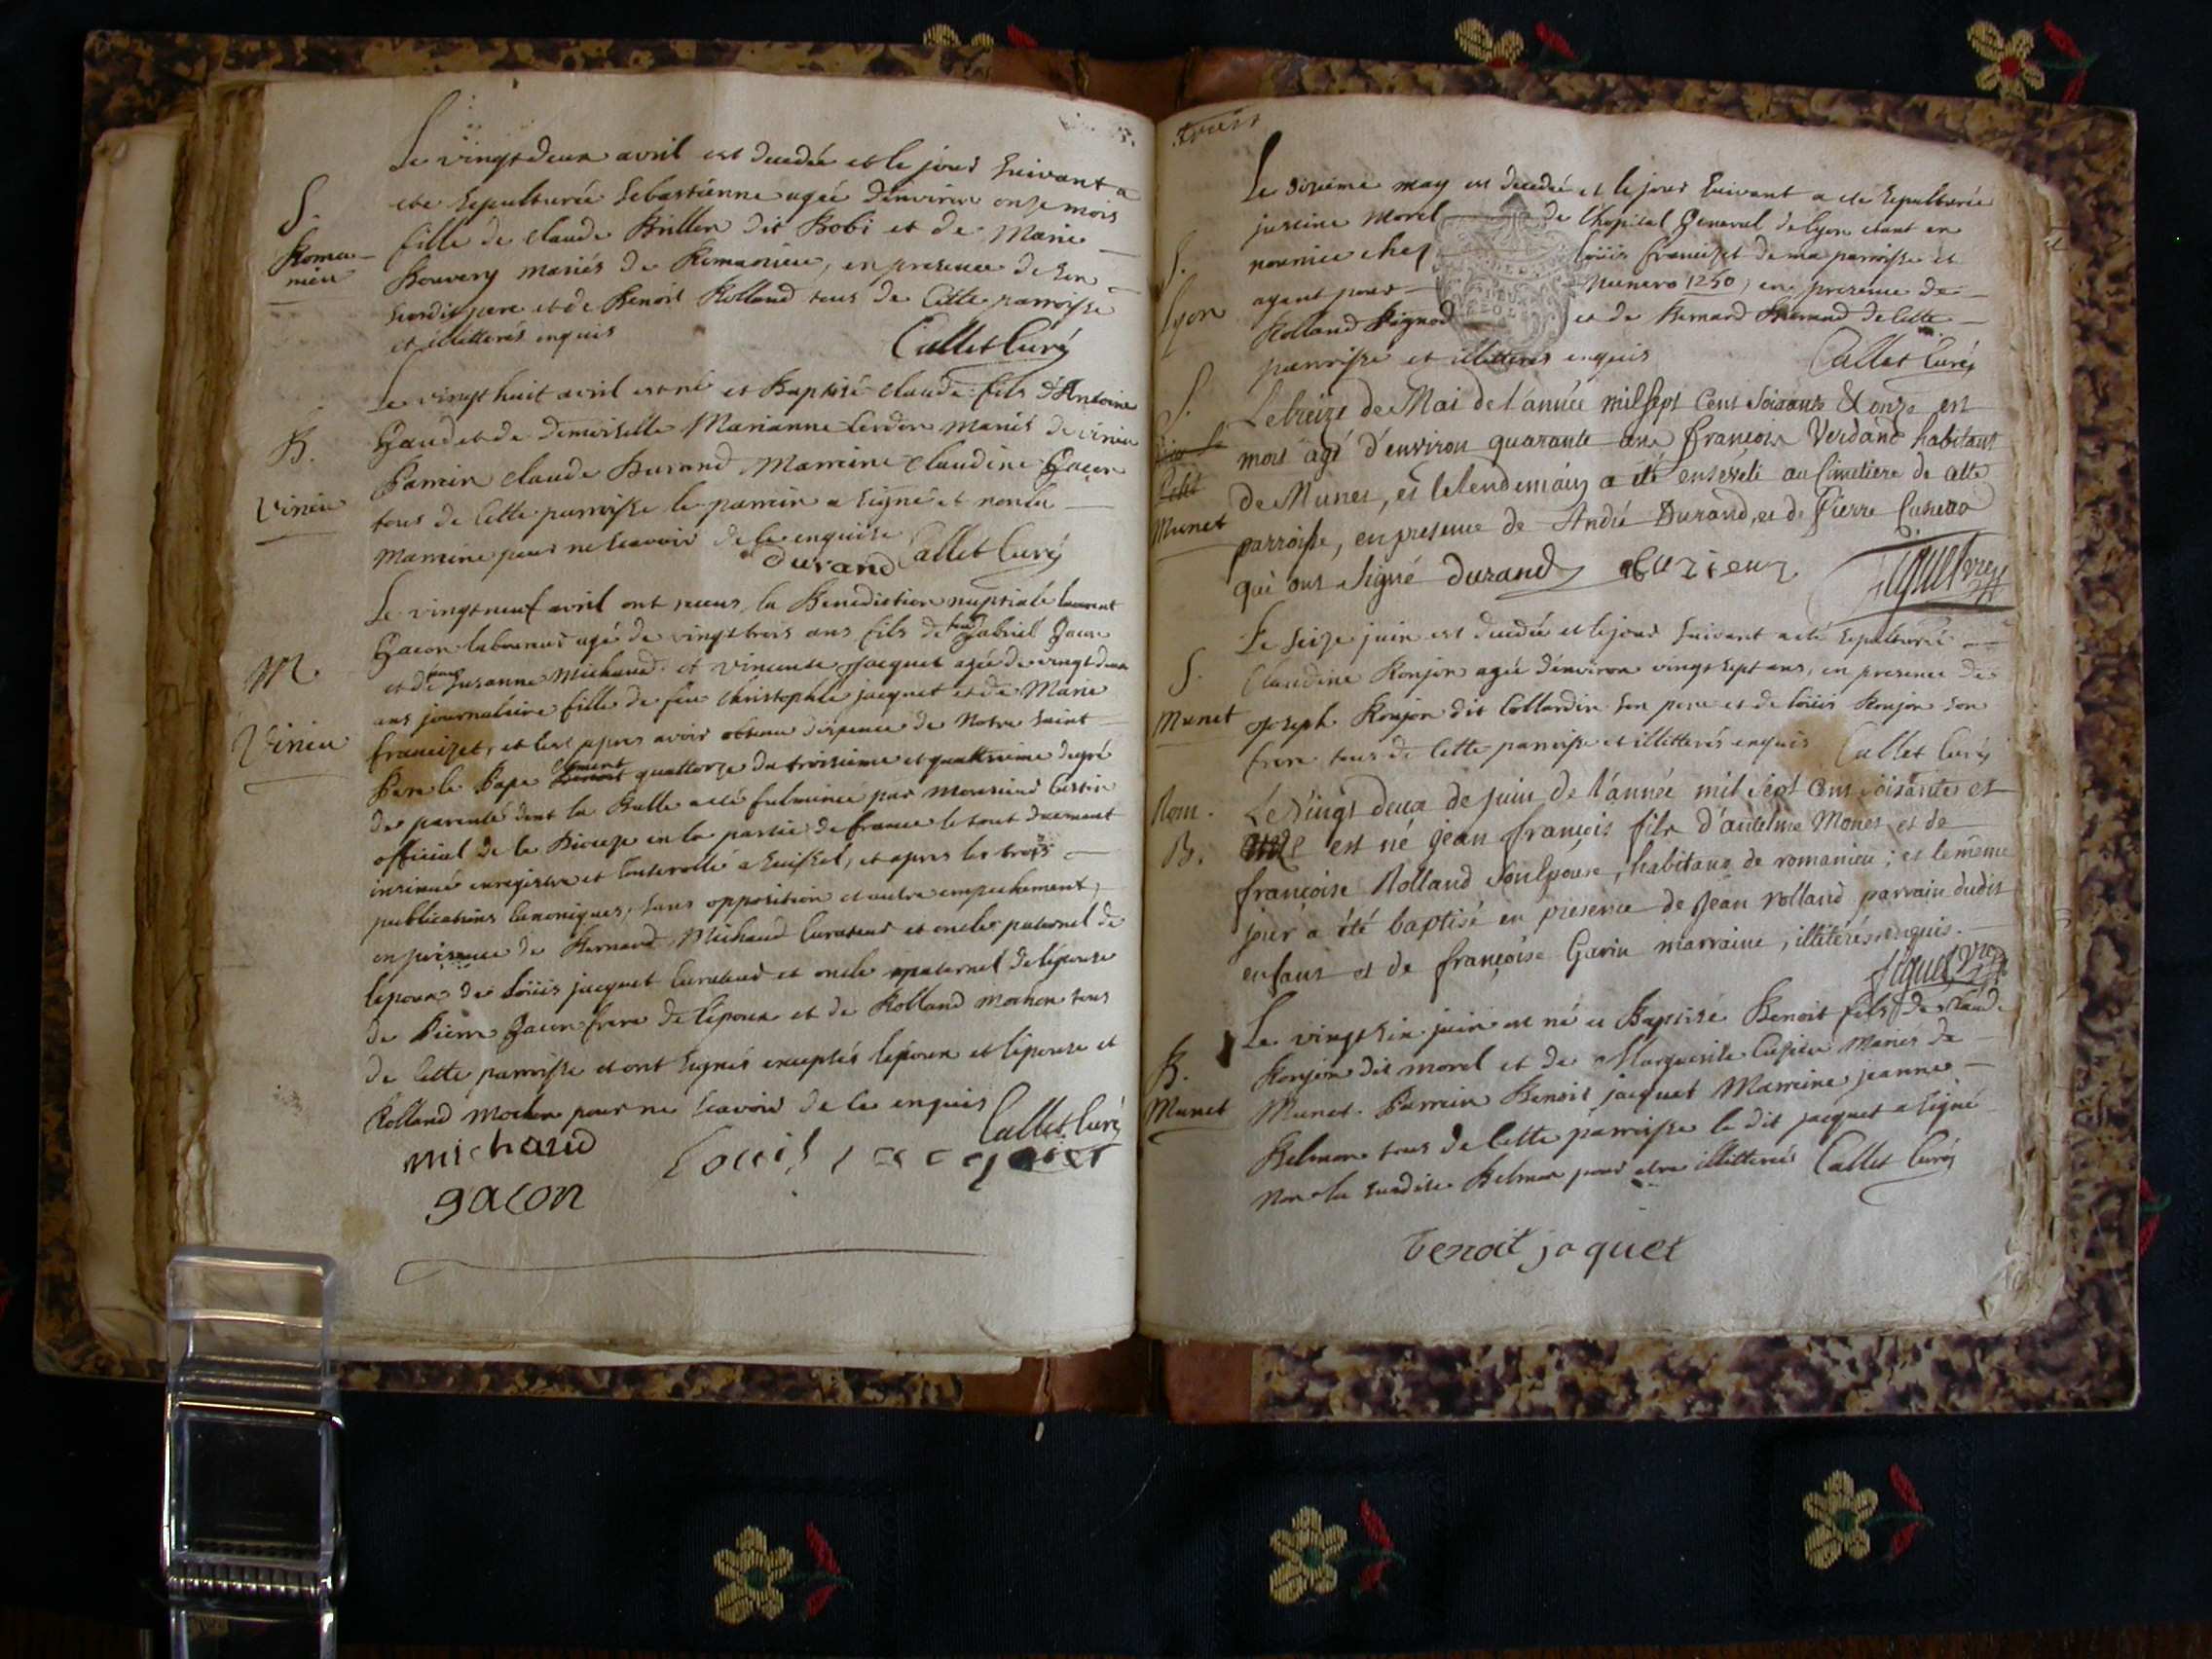 Le vingt deux avril est decedée et le jour suivant a
S.
été sepulturée Sebastienne agée d'environ onze mois
Roma-
nieu
fille de claude Brillon dit Bobi et de Marie
Bouvery mariés de Romanieu, en presence de son
susdit pere et de Benoit Rolland tous de cette parroisse
et illitterés enquis
Callet Curé
Le vingt huit avril est né et Baptisé claude fils d'Antoine
B.
et de Demoiselle Marianne mariés de virieu
Virieu
Parrein claude Durand Marreine claudine Gacon
tous de cette parroisse le parrein a signé et non la
Marreine pour ne scavoir de ce enquise
Durand Callet Curé
Le vingt neuf avril ont receus la Benediction nuptiale laurent
M
Gacon laboureur agé de vingt trois ans fils de feu Gabriel Gacon
et de feue Susanne Michaud et vincente Jacquet agée de vingt deux
ans journaliere fille de feu christophle jacquet et de Marie
Virieu
francizet, et c'est apres avoir obtenu dispence de Notre saint
Pere le Pape clement quattorze du troisieme et quattrieme degré
de parenté dont la Bulle a eté fulminée par Monsieur
official de le Dioceze en la partie de france le tout duement
insinué enregistré et controllé a Seissel, et apres les trois
publications canoniques, sans opposition et autre empechement,
en presence de Bernard Michaud curateur et oncle paternel de
l'epoux de Loüis jacquet curateur et oncle paternel de l'epouse
de Pierre Gacon frere de l'epoux et de Rolland mochon tous
de cette parroisse et ont signés exceptés l'epoux et l'epouse et
Rolland mochon pour ne scavoir de ce enquis
Callet Curé
michaud
Louis jacquet
gacon
trois
Le sixieme may est decedée et le jour suivant a ete sepulturée
justine Morel de l'hopital General de lyon etant en
S.
Lyon
nourrice chez Loüis francizet de ma parroisse et
ayant pour Numero 1250, en presence de
Rolland Pignod et de Bernard Durand de cette
parroisse et illitterés enquis
Callet Curé
S.
Munet
Le treize de Mai de l'année mil sept cent soixante & onze est
mort agé d'environ quarante ans françois Verdand habitant
de Munet, et le lendemain a été enseveli au cimetiere de cette
parroisse, en presence de André Durand, et de Pierre
qui ont signé durand cuzieux
Le seize juin est decedée et le jour suivant a eté sepulturée
S.
Claudine Ronjon agée d'environ vingt sept ans, en presence de
Munet
Joseph Ronjon dit Collardin son pere et de loüis Ronjon son
frere tous de cette parroisse et illitterés enquis Callet Curé
Rom.
B.
Le vingt deux de juin de l'année mil sept cent soixante et
onze est né jean françois fils d'antelme Monet et de
françoise Rolland son epouse, habitans de romanieu; et le même
jour a été baptisé en presence de Jean rolland parrain dudit
enfant et de françoise Gavin marraine, illitérés enquis.
Le vingt six juin est né et Baptisé Benoit fils de claude
B.
Ronjon dit morel et de Marguerite Mariés de
Munet
Munet. Parrein Benoit jacquet Marreine jeanne
Belmon tous de cette parroisse le dit jacquet a signé
Non la susdite Belmon pour etre illitterée Callet Curé
Benoit jaquet